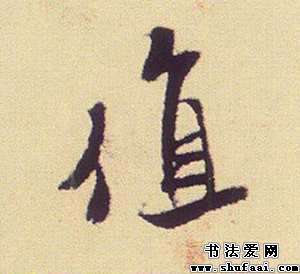 值
书法爱网
www.shufaai.com